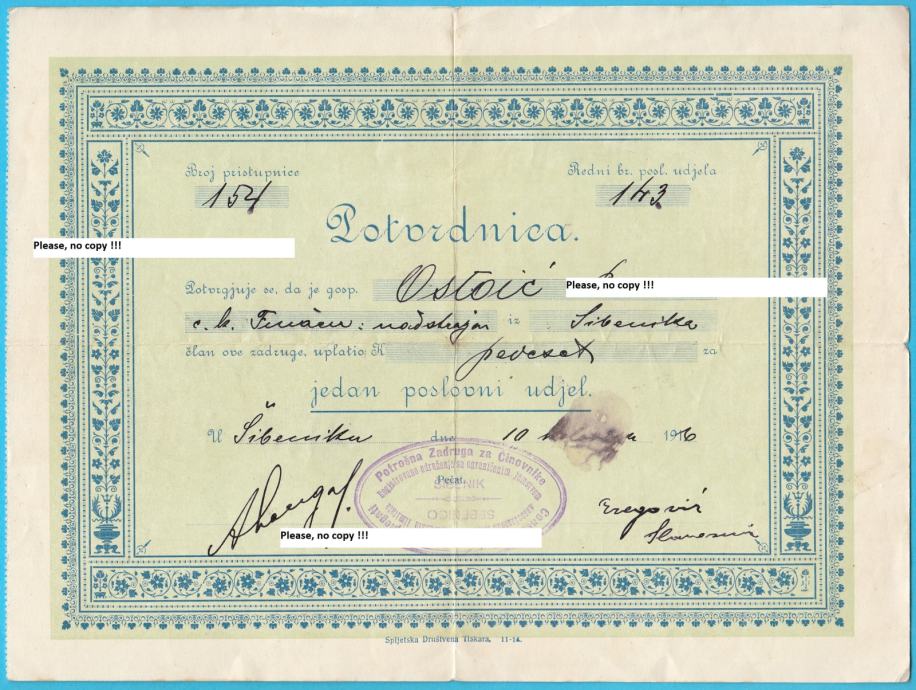 Broj pristupnice
Redni br. posl. udjela
154
143
Potvrdnica.
Please, no copy !!!
Potvrgjuje se, da je gosp. Ostoić
Please, no copy !!!
c. k. Financ. nadstražar iz Šibenika
član ove zadruge, uplatio K pedeset za
jedan poslovni udjel.
U Šibeniku dne 10 1916
Potrošna Zadruga za Činovnike
ŠIBENIK
Pečat.
SEBENICO
Please, no copy !!!
Spljetska Društvena Tiskara. 11-14.